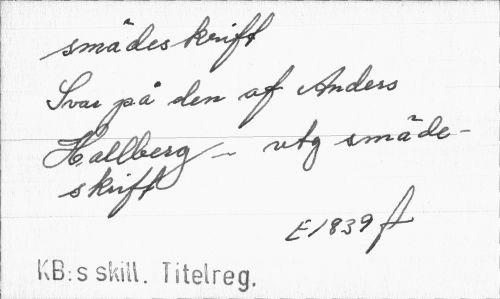 smädeskrift
Svar på den af Anders
Hallberg – utg smäde-
skrift
E1839 ft
KB:s skill. Titelreg.